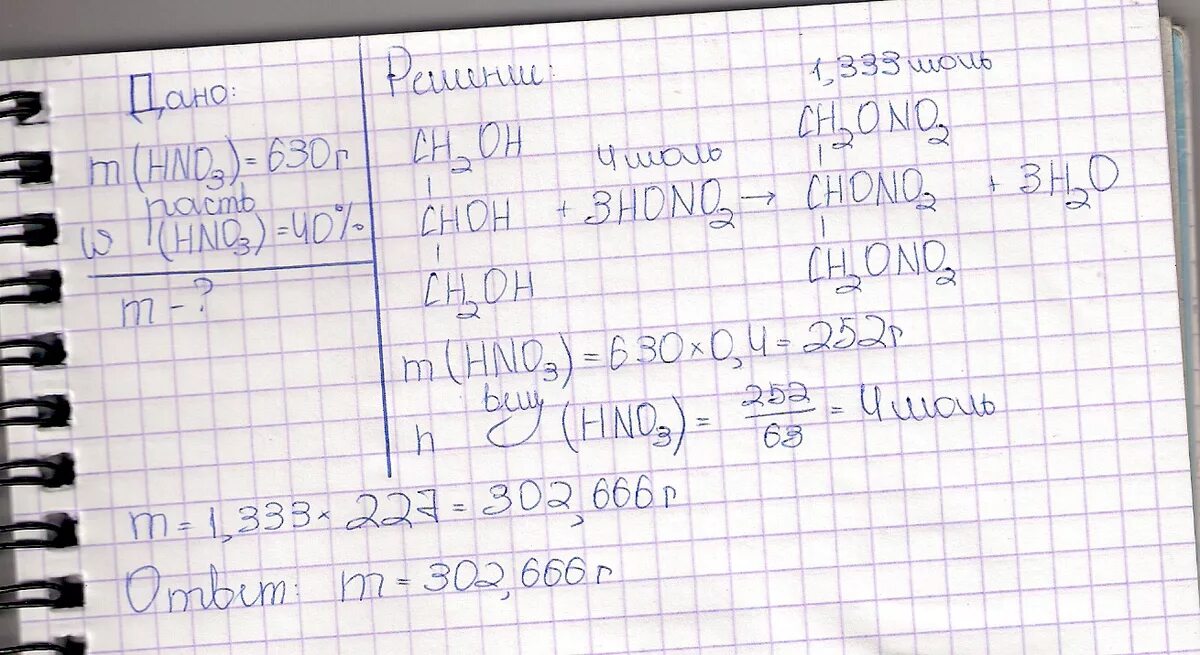 Дано:
m(HNO₃)=630г
раств
ω (HNO₃)=40%
m-?
Решении:
1,333моль
CH₂OH 4моль CH₂ONO₂
CHOH + 3HONO₂ → CHONO₂ + 3H₂O
CH₂OH CH₂ONO₂
m(HNO₃)=630×0,4=252г
вещ
n (HNO₃)= 252/63 = 4моль
m=1,333×227=302,666г
Ответ: m=302,666г